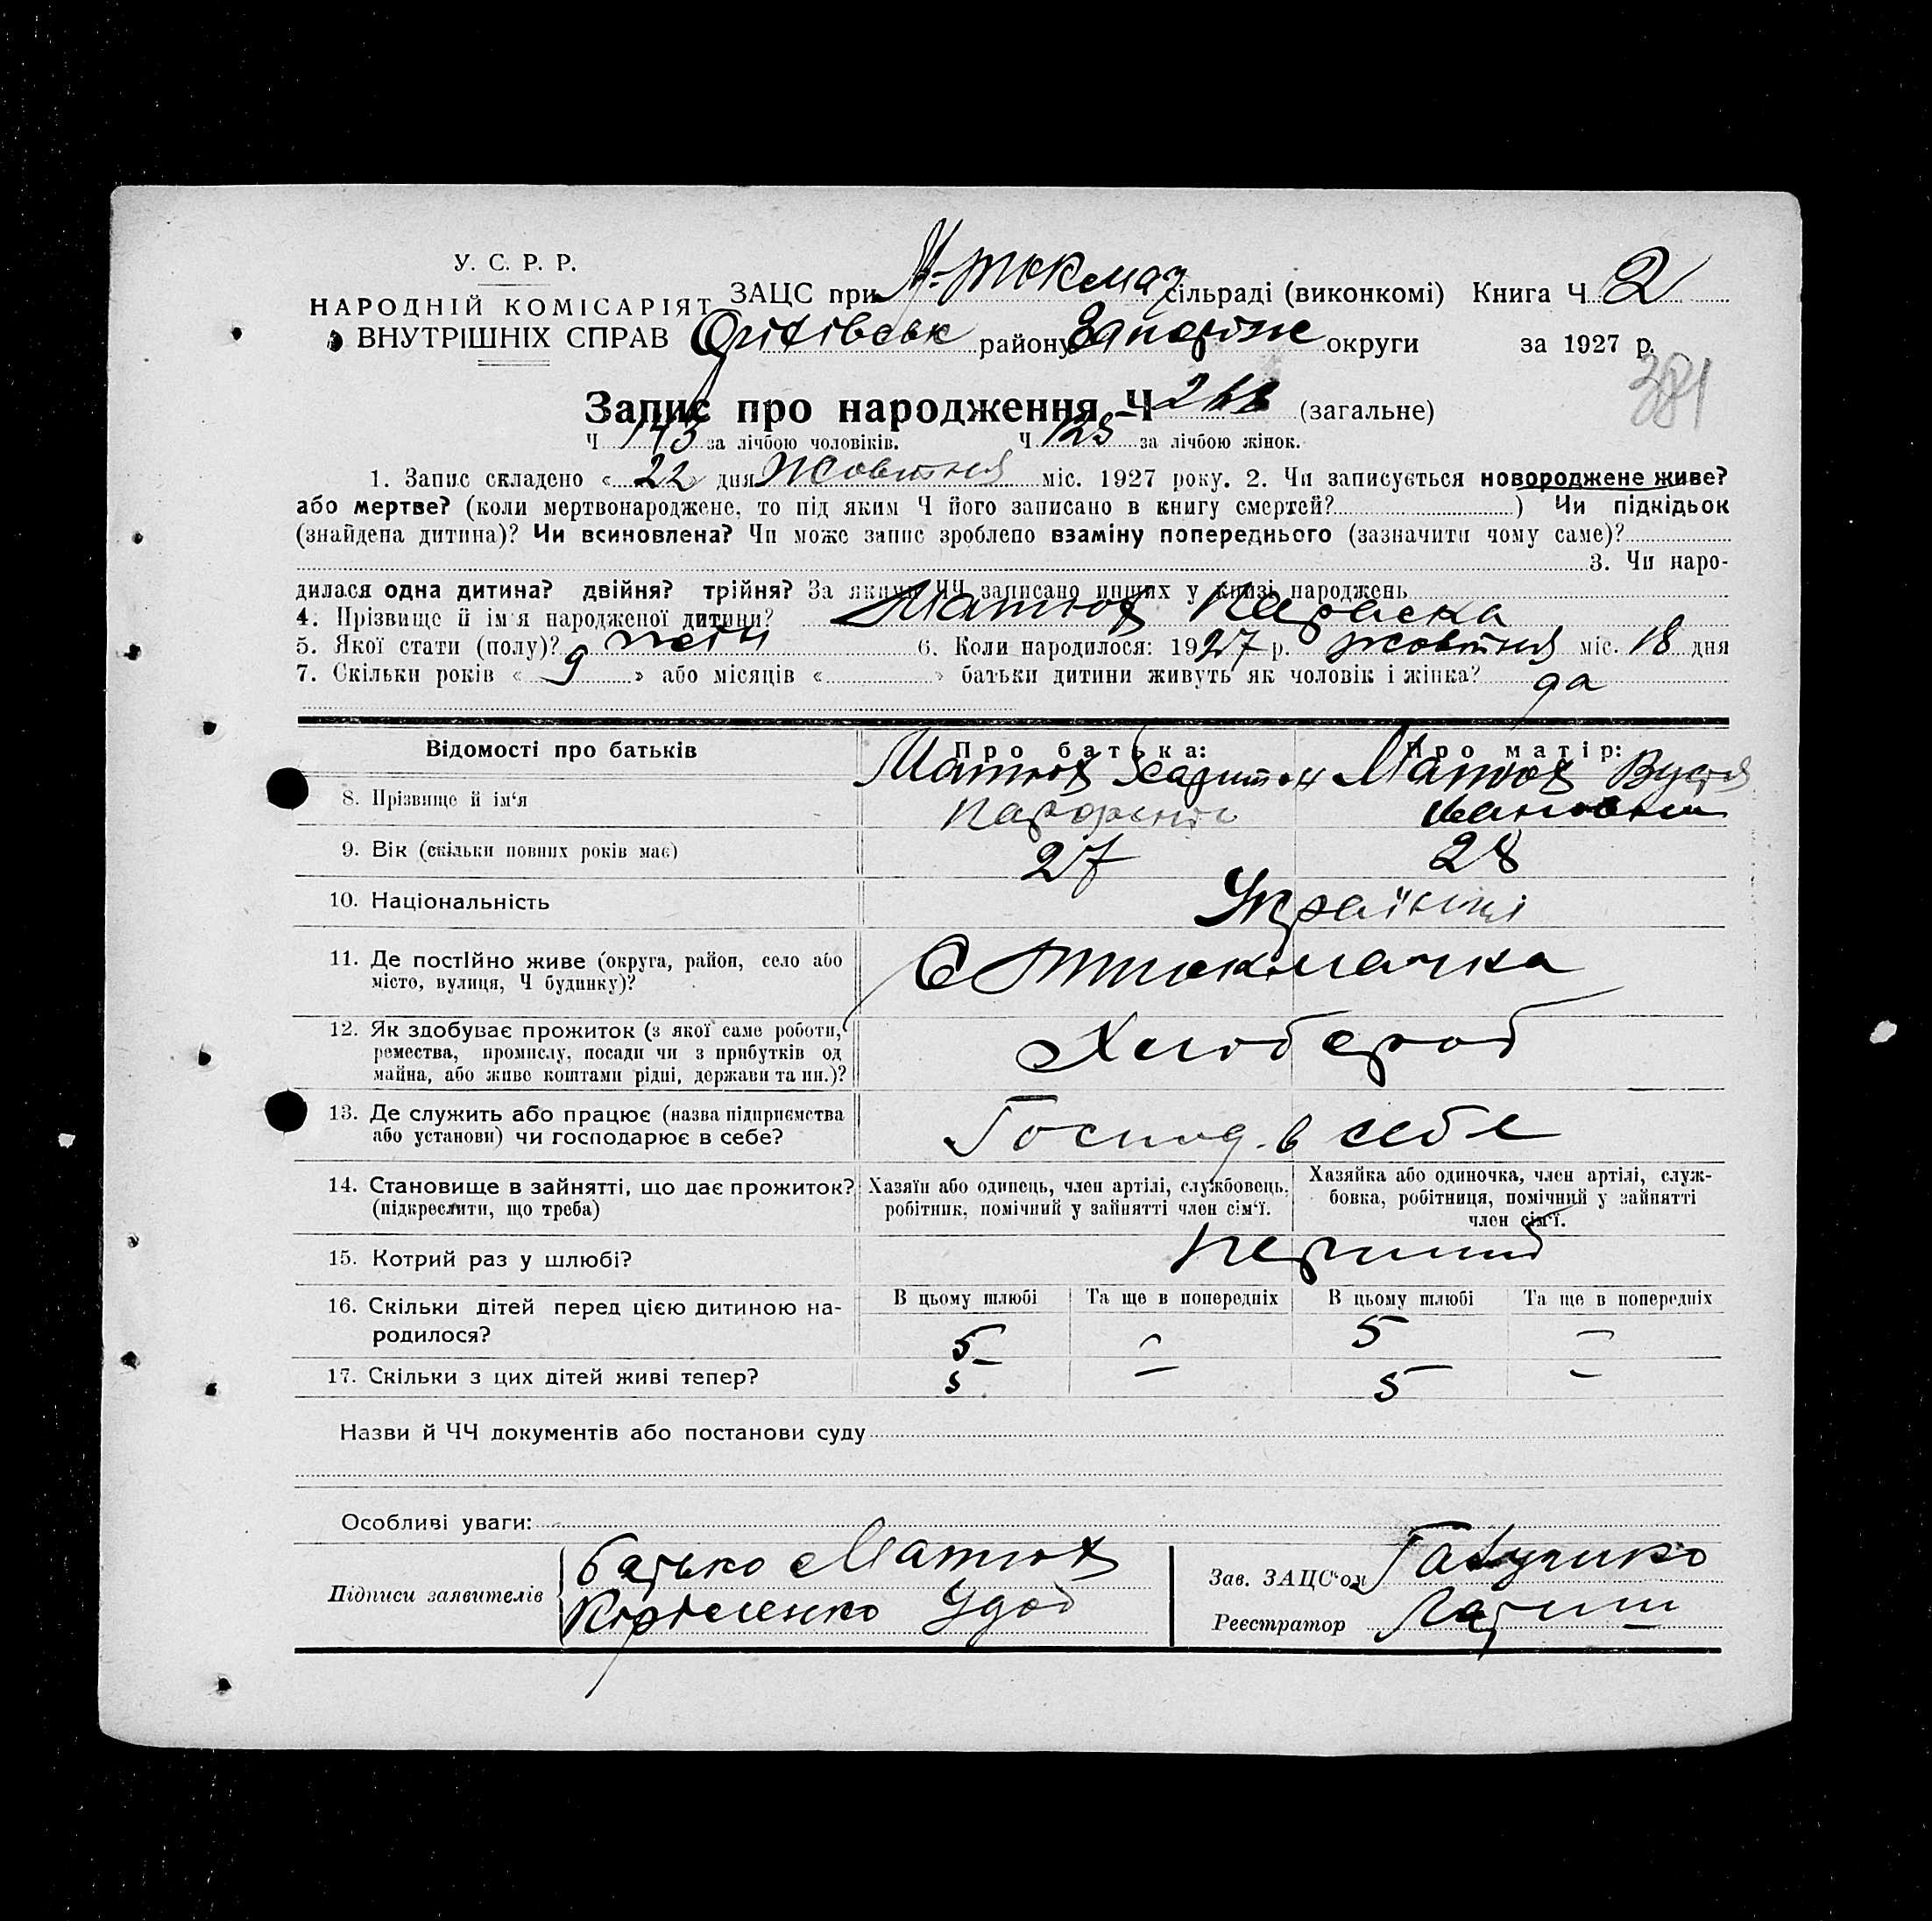 У. С. Р. Р.
НАРОДНІЙ КОМІСАРІЯТ
ВНУТРІШНІХ СПРАВ
ЗАЦС при М.-Токмаз сільраді (виконкомі) Книга Ч. 2
Оріхівськ району Запоріж округи за 1927 р.
381
Запис про народження Ч (загальне)
Ч 143 за лічбою чоловіків. Ч 125 за лічбою жінок.
1. Запис складено « 22 » дня Жовтня міс. 1927 року. 2. Чи записується новороджене живе?
або мертве? (коли мертвонароджене, то під яким Ч його записано в книгу смертей? ) Чи підкідьок
(знайдена дитина)? Чи всиновлена? Чи може запис зроблено взаміну попереднього (зазначити чому саме)?
3. Чи наро-
дилася одна дитина? двійня? трійня? За якими ЧЧ записано инших у книзі народжень
4. Прізвище й ім'я народженої дитини? Матюх Параска
5. Якої стати (полу)? жен 6. Коли народилося: 1927 р. жовтня міс. 18 дня
7. Скільки років « 9 » або місяців « » батьки дитини живуть як чоловік і жінка? да
Відомості про батьків Про батька: Про матір:
8. Прізвище й ім'я Матюх Харитон Матюх Вустя
Івановна
9. Вік (скільки повних років має) 27 28
10. Національність Українці
11. Де постійно живе (округа, район, село або
місто, вулиця, Ч будинку)? С Токмачка
12. Як здобуває прожиток (з якої саме роботи,
ремества, промислу, посади чи з прибутків од
майна, або живе коштами рідні, держави та ин.)? Хлібороб
13. Де служить або працює (назва підприємства
або установи) чи господарює в себе? Господ. в себе
14. Становище в зайнятті, що дає прожиток?
(підкреслити, що треба)
Хазяїн або одинець, член артілі, службовець,
робітник, помічний у зайнятті член сім'ї.
Хазяйка або одиночка, член артілі, служ-
бовка, робітниця, помічний у зайнятті
член сім'ї.
15. Котрий раз у шлюбі? перший
16. Скільки дітей перед цією дитиною на-
родилося?
В цьому шлюбі Та ще в попередніх В цьому шлюбі Та ще в попередніх
5 – 5 –
17. Скільки з цих дітей живі тепер? 5 – 5 –
Назви й ЧЧ документів або постанови суду
Особливі уваги:
Підписи заявителів
батько Матюх
Кириленко Удод
Зав. ЗАЦС'ом
Реєстратор